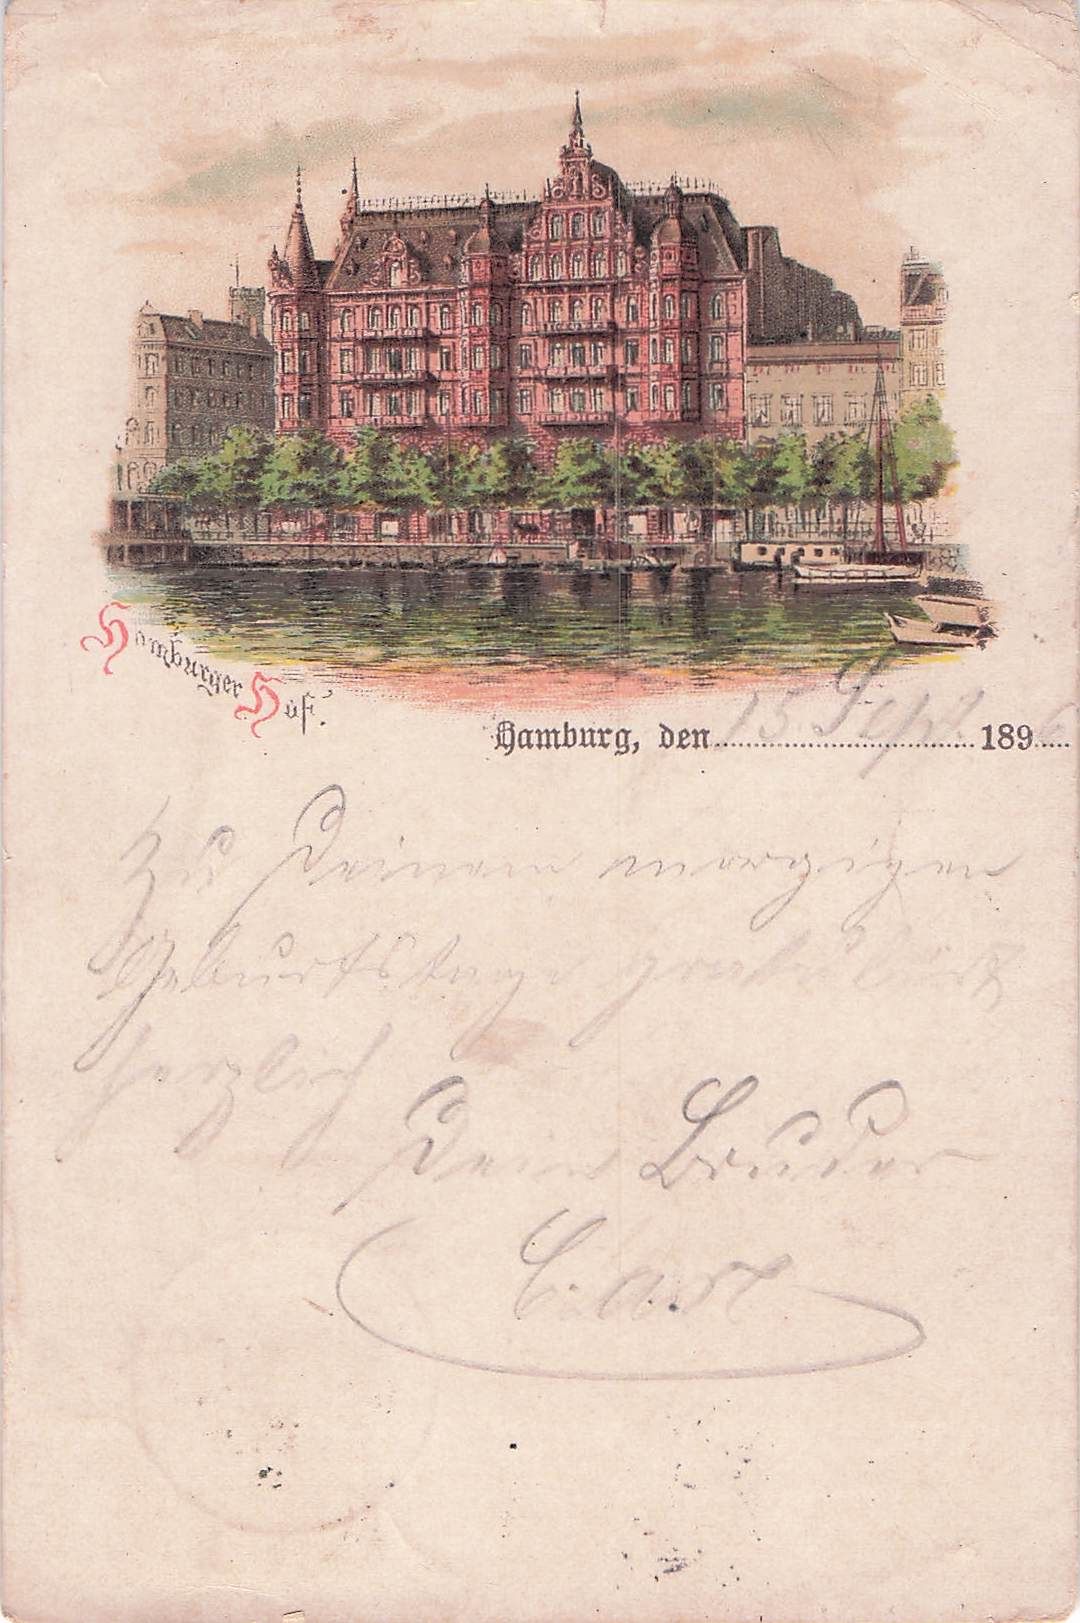 Hamburger Hof.
Hamburg, den 15. Sept. 1896
Zu Deinem morgigen
Geburtstage gratuliert
herzlich
Dein Bruder
Carl